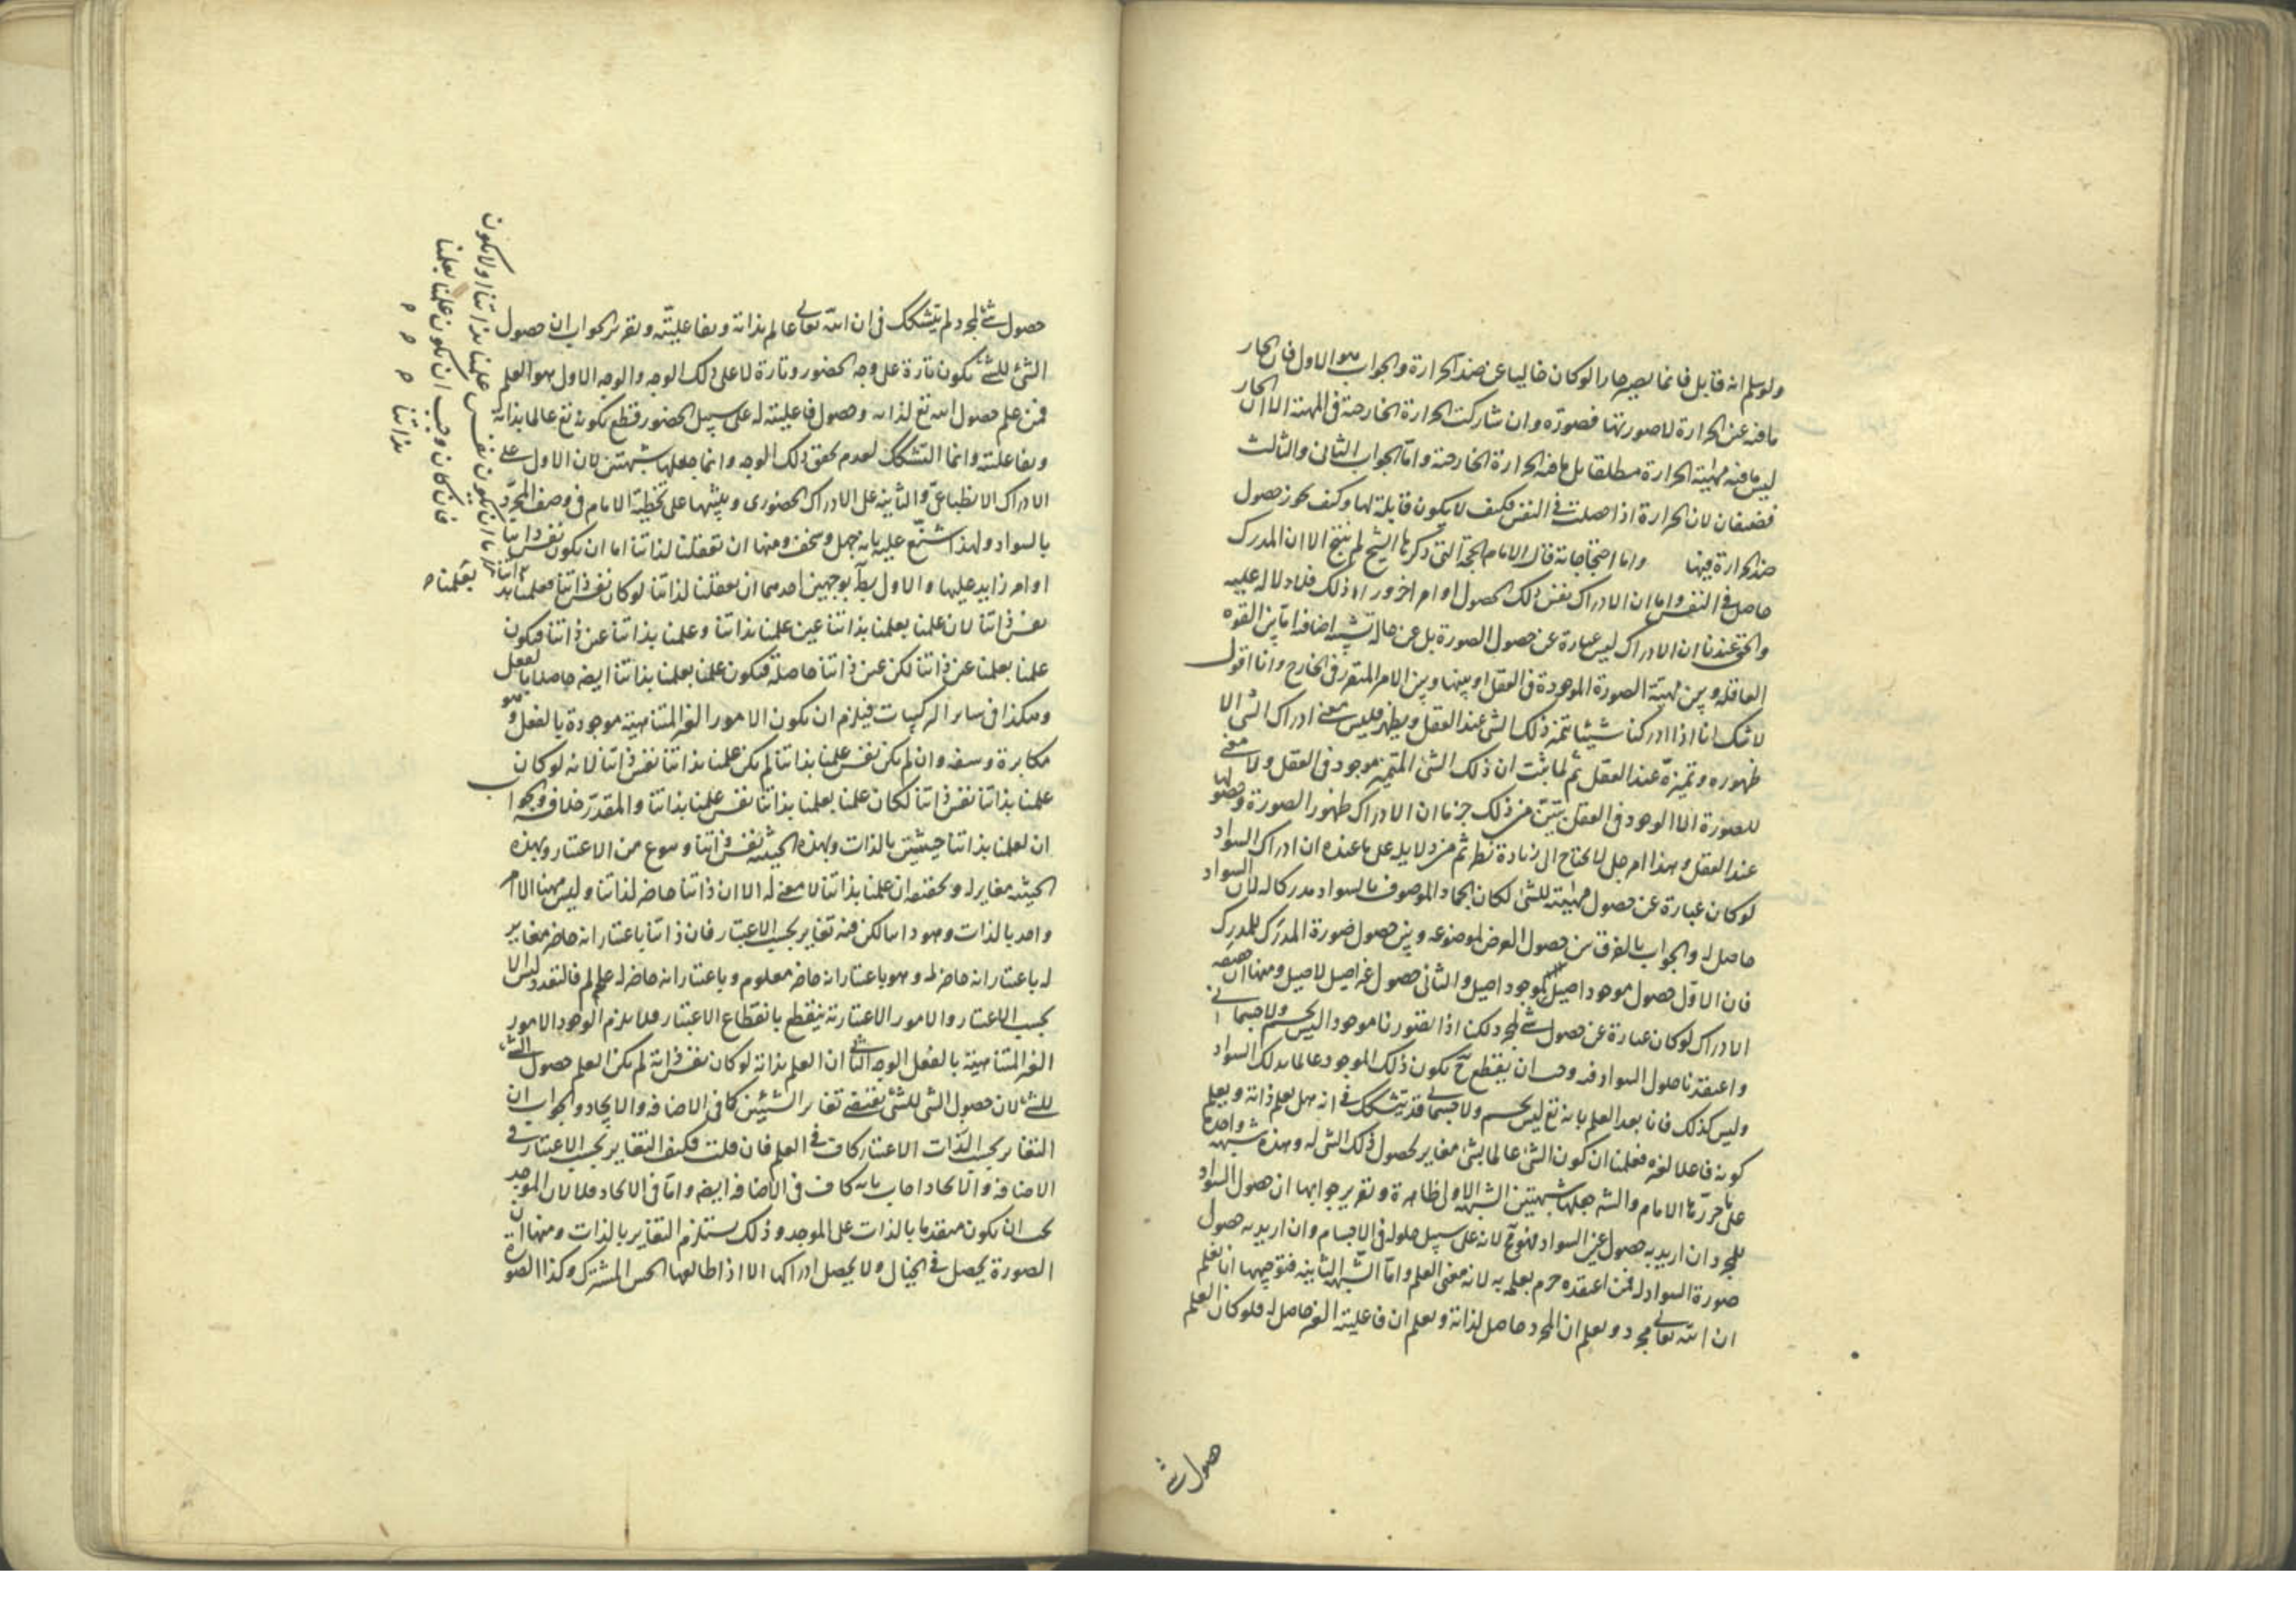 ولو سلم انه قابل فانما يصير حارا لو كان خاليا عن ضد الحرارة والجواب هو الاول فان الحار
ما فيه عين الحرارة لا صورتها فصورته وان شاركت الحرارة الخارجية في المهية الا ان الحار
ليس ما فيه مهية الحرارة مطلقا بل ما فيه الحرارة الخارجية واما الجواب الثاني والثالث
فضعيفان لان الحرارة اذا حصلت في النفس فكيف لا يكون قابلة لها وكيف يجوز حصول
ضد الحرارة فيها واما احتجاجاته قال الامام الحجة التي ذكرها الشيخ لم ينتج الا ان المدرك
حاصل في النفس واما ان الادراك نفس ذلك الحصول او امر اخر وراء ذلك فلا دلالة عليه
والحق عندنا ان الادراك ليس عبارة عن حصول الصورة بل عن حالة نسبية اضافية اما بين القوة
العاقلة وبين مهية الصورة الموجودة في العقل او بينها وبين الامر المتقرر في الخارج وانا اقول
لا شك انا اذا ادركنا شيئا يتميز ذلك الشئ عند العقل ويظهر فليس معنى ادراك الشئ الا
ظهوره وتميزه عند العقل ثم لما ثبت ان ذلك الشئ المتميز موجود في العقل ولا معنى
للصورة الا الوجود في العقل تبين من ذلك جزما ان الادراك ظهور الصورة وحصولها
عند العقل وهذا امر جلي لا يحتاج الى زيادة نظر ثم من دلايله على ما عنده ان ادراك السواد
لو كان عبارة عن حصول مهية للشئ لكان الجماد الموصوف بالسواد مدركا له لان السواد
حاصل له والجواب بالفرق بين حصول العرض لموضوعه وبين حصول صورة المدرك للمدرك
فان الاول حصول موجود اصيل لموجود اصيل والثاني حصول غير اصيل لاصيل ومنها ان حقيقة
الادراك لو كان عبارة عن حصول شئ لمجرد لكنا اذا تصورنا موجودا ليس بجسم ولا جسماني
واعتقدنا حلول السواد فيه وجب ان يقطع ح بكون ذلك الموجود عالما بذلك السواد
وليس كذلك فانا بعد العلم بانه تع ليس بجسم ولا جسماني قد يتشكك في انه هل يعلم ذاته ويعلم
كونه فاعلا لغيره فعلمنا ان كون الشئ عالما بشئ مغاير لحصول ذلك الشئ له وهذه شبهة واحدة
على ما حررها الامام والشه جعلها شبهتين الشبهة الاولى ظاهرة وتقرير جوابها ان حصول السواد
للمجرد ان اريد به حصول عين السواد فهو مح لانه على سبيل حلوله في الاجسام وان اريد به حصول
صورة السواد له فمن اعتقده جزم بعلمه به لانه معنى العلم واما الشبهة الثانية فتوجيهها انا نعلم
ان الله تعالى مجرد ويعلم ان المجرد حاصل لذاته ويعلم ان فاعليته للغير حاصل له فلو كان العلم
حصول شئ
حصول شئ لمجرد لم يتشكك في ان الله تعالى عالم بذاته وبفاعليته وتقرير الجواب ان حصول
الشئ للشئ يكون تارة على وجه الحضور وتارة لا على ذلك الوجه والوجه الاول هو العلم
فمن علم حصول الله تع لذاته وحصول فاعليته له على سبيل الحضور قطع بكونه تع عالما بذاته
وبفاعليته وانما التشكك لعدم تحقق ذلك الوجه وانما جعلها شبهتين لان الاول على
الادراك الانطباعي والثانية على الادراك الحضوري وينبئها على تخطية الامام في وصف المجرد
بالسواد ولهذا شنع عليه بانه جهل وسخف ومنها ان تعقلنا لذاتنا اما ان يكون نفس ذاتنا
او امر زايد عليها والاول بط بوجهين احدهما ان تعقلنا لذاتنا لو كان نفس ذاتنا فعلمنا بعلمنا
نفس ذاتنا لان علمنا بعلمنا بذاتنا عين علمنا بذاتنا وعلمنا بذاتنا عين ذاتنا فيكون
علمنا بعلمنا عين ذاتنا لكن عين ذاتنا حاصلة فيكون علمنا بعلمنا بذاتنا ايضا حاصلا بالفعل
وهكذا في ساير التركيبات فيلزم ان يكون الامور الغير المتناهية موجودة بالفعل وهو
مكابرة وسفه وان لم يكن نفس علمنا بذاتنا لم يكن علمنا بذاتنا نفس ذاتنا لانه لو كان
علمنا بذاتنا نفس ذاتنا لكان علمنا بعلمنا بذاتنا نفس علمنا بذاتنا والمقدر خلافه والجواب
ان لعلمنا بذاتنا حيثيتين بالذات وبهذه الحيثية نفس ذاتنا ونوع من الاعتبار وبهذه
الحيثية مغاير له وتحقيقه ان علمنا بذاتنا لا معنى له الا ان ذاتنا حاضر لذاتنا وليس ههنا الا امر
واحد بالذات وهو ذاتنا لكن فيه تغاير بحسب الاعتبار فان ذاتنا باعتبار انه حاضر مغاير
له باعتبار انه حاضر له وهو باعتبار انه حاضر معلوم وباعتبار انه حاضر له عالم فالتعدد ليس الا
بحسب الاعتبار والامور الاعتبارية ينقطع بانقطاع الاعتبار فلا يلزم الوجود الامور
الغير المتناهية بالفعل الوجه الثاني ان العلم بذاته لو كان نفس ذاته لم يكن العلم حصول الشئ
للشئ لان حصول الشئ للشئ يقتضي تغاير الشيئين كما في الاضافة والايجاد والجواب ان
التغاير بحسب الذات الاعتبار كاف في العلم فان قلت فكيف التغاير بحسب الاعتبار في
الاضافة والايجاد اجاب بانه كاف في الاضافة ايضا واما في الايجاد فلا لان الموجد
يجب ان يكون متقدما بالذات على الموجد وذلك يستلزم التغاير بالذات ومنها ان
الصورة يحصل في الخيال ولا يحصل ادراكها الا اذا طالعها الحس المشترك وكذا الصورة
اما ان يكون نفس علمنا بذاتنا او لا يكون
فان كان وجب ان يكون علمنا بعلمنا
بذاتنا م م م